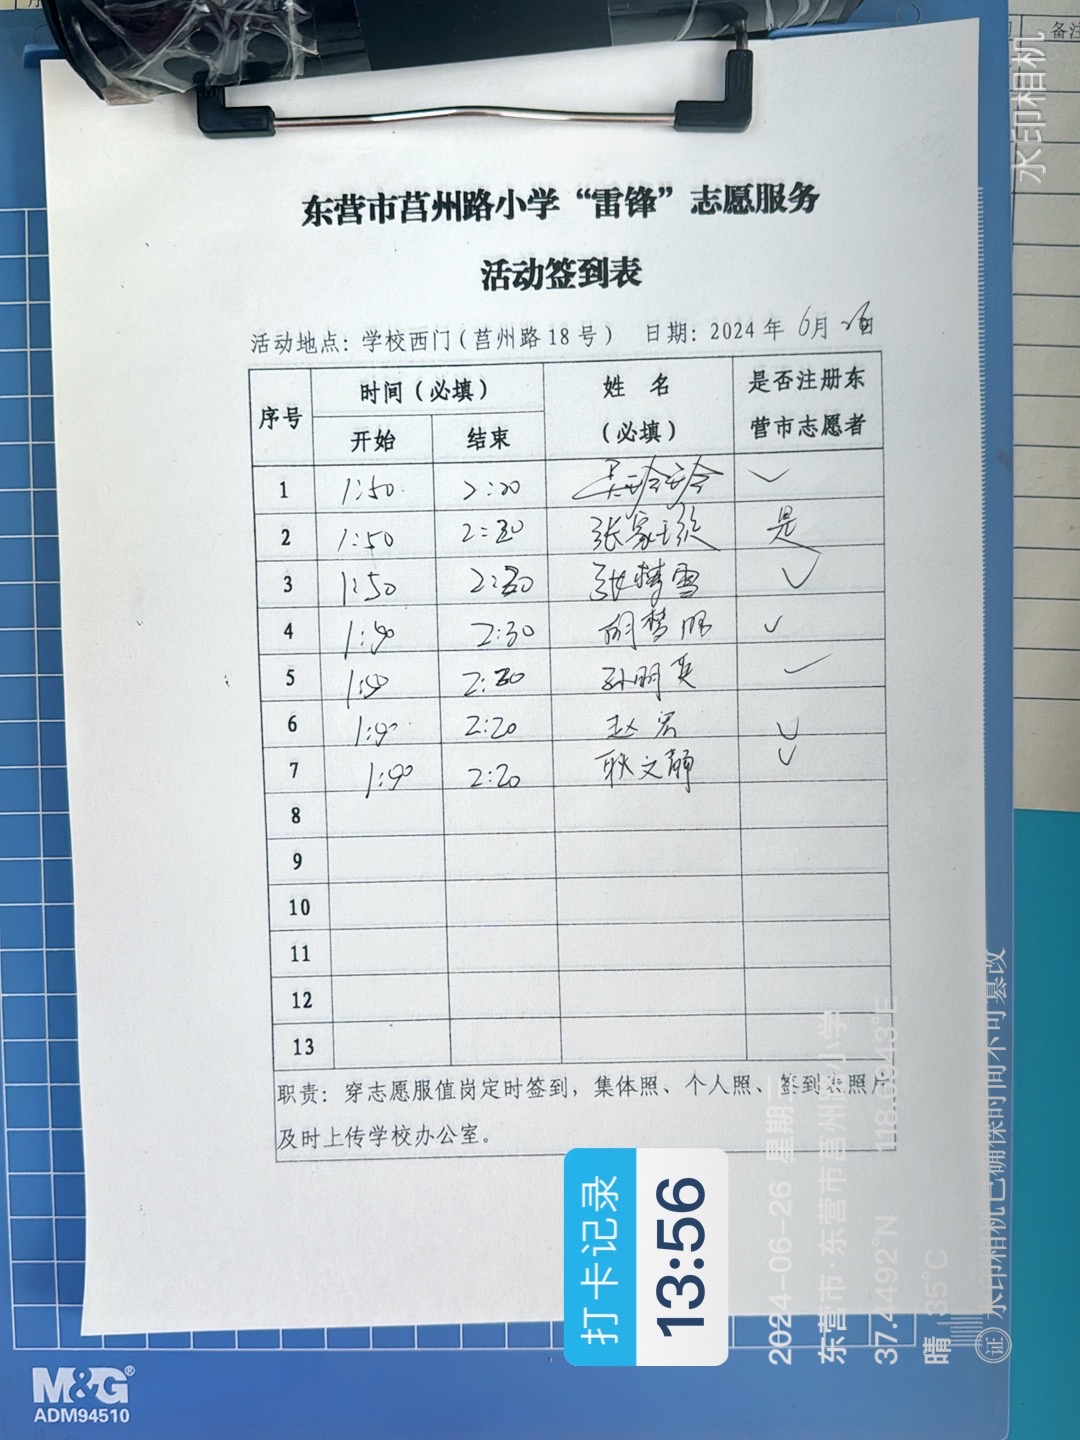 东营市莒州路小学“雷锋”志愿服务
活动签到表
活动地点：学校西门（莒州路18号） 日期：2024年 6月 26日
序号 时间（必填） 姓 名（必填） 是否注册东营市志愿者
开始 结束
1 1:50 2:20 吴玲玲 ✓
2 1:50 2:20 张家 是
3 1:50 2:30 张梦雪 ✓
4 1:50 2:30 胡梦 ✓
5 1:50 2:20 孙明英 ✓
6 1:50 2:20 赵 ✓
7 1:50 2:20 耿文静 ✓
8
9
10
11
12
13
职责：穿志愿服值岗定时签到，集体照、个人照、签到表照片
及时上传学校办公室。
打卡记录
13:56
2024-06-26 星期三
东营市·东营市莒州路小学
37.4492°N 118.6043°E
晴 35°C
证 水印相机已确保时间不可篡改
水印相机
备注
M&G®
ADM94510